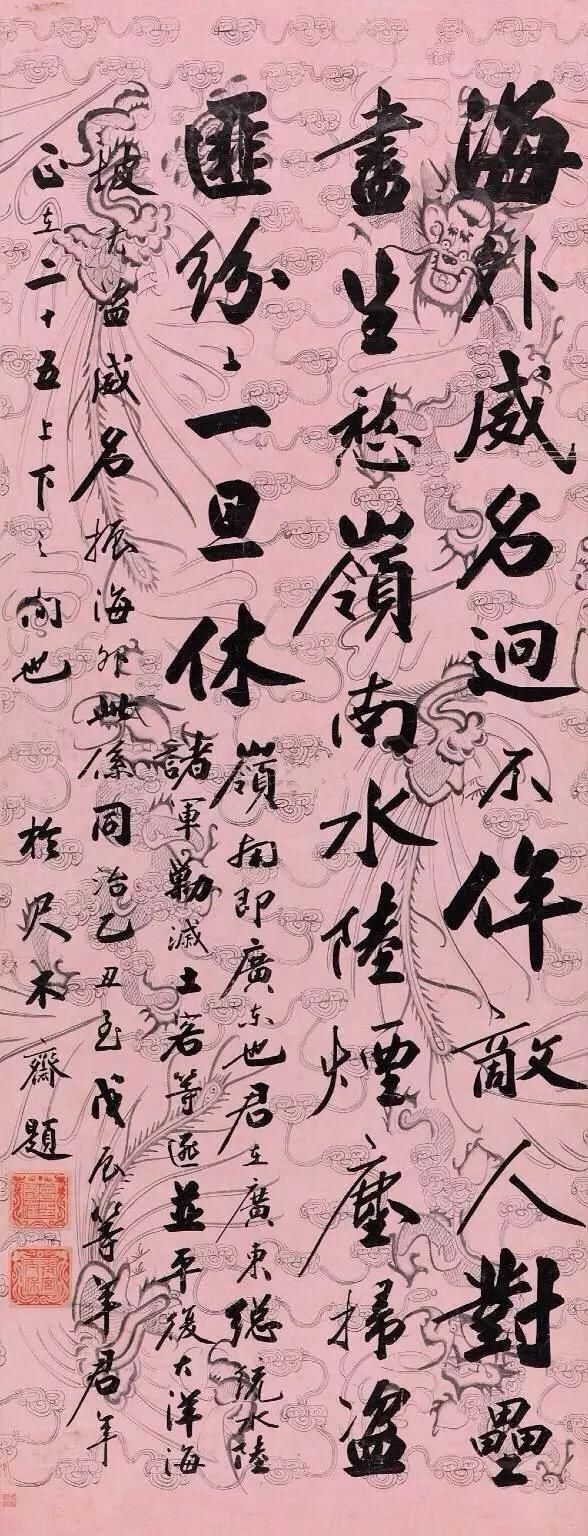 海外威名迥不侔敵人對壘
盡生愁嶺南水陸煙塵掃盜
匪紛〻一旦休
嶺南即廣東也君在廣東總統水陸
諸軍勦滅土客等匪並平復大洋海
尤益威名振海外此係同治乙丑至戊辰等年君年
正在二十五上下之間也 於尺木齋題